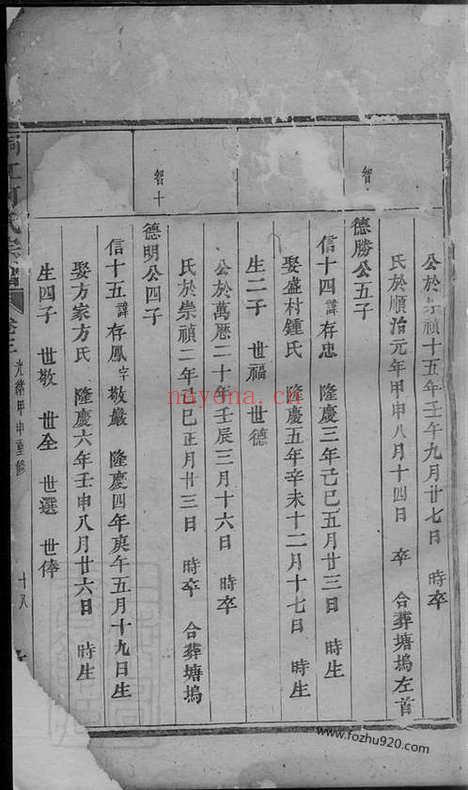 公於崇禎十五年壬午九月廿七日 時卒
氏於順治元年甲申八月十四日 卒 合葬塘塢左首
德勝公五子
信十四諱存忠 隆慶三年己巳五月廿三日 時生
娶盛村鍾氏 隆慶五年辛未十二月十七日 時生
生二子 世福 世德
公於萬厯二十年壬辰三月十六日 時卒
氏於崇禎二年己巳正月廿三日 時卒 合葬塘塢
智十
德明公四子
信十五諱存鳳字敬嚴 隆慶四年庚午五月十九日生
娶方家方氏 隆慶六年壬申八月廿六日 時生
生四子 世敬 世全 世選 世俸
氏宗譜
卷三
光緒甲申重修
十八
nayona.cn
www.fozhu920.com